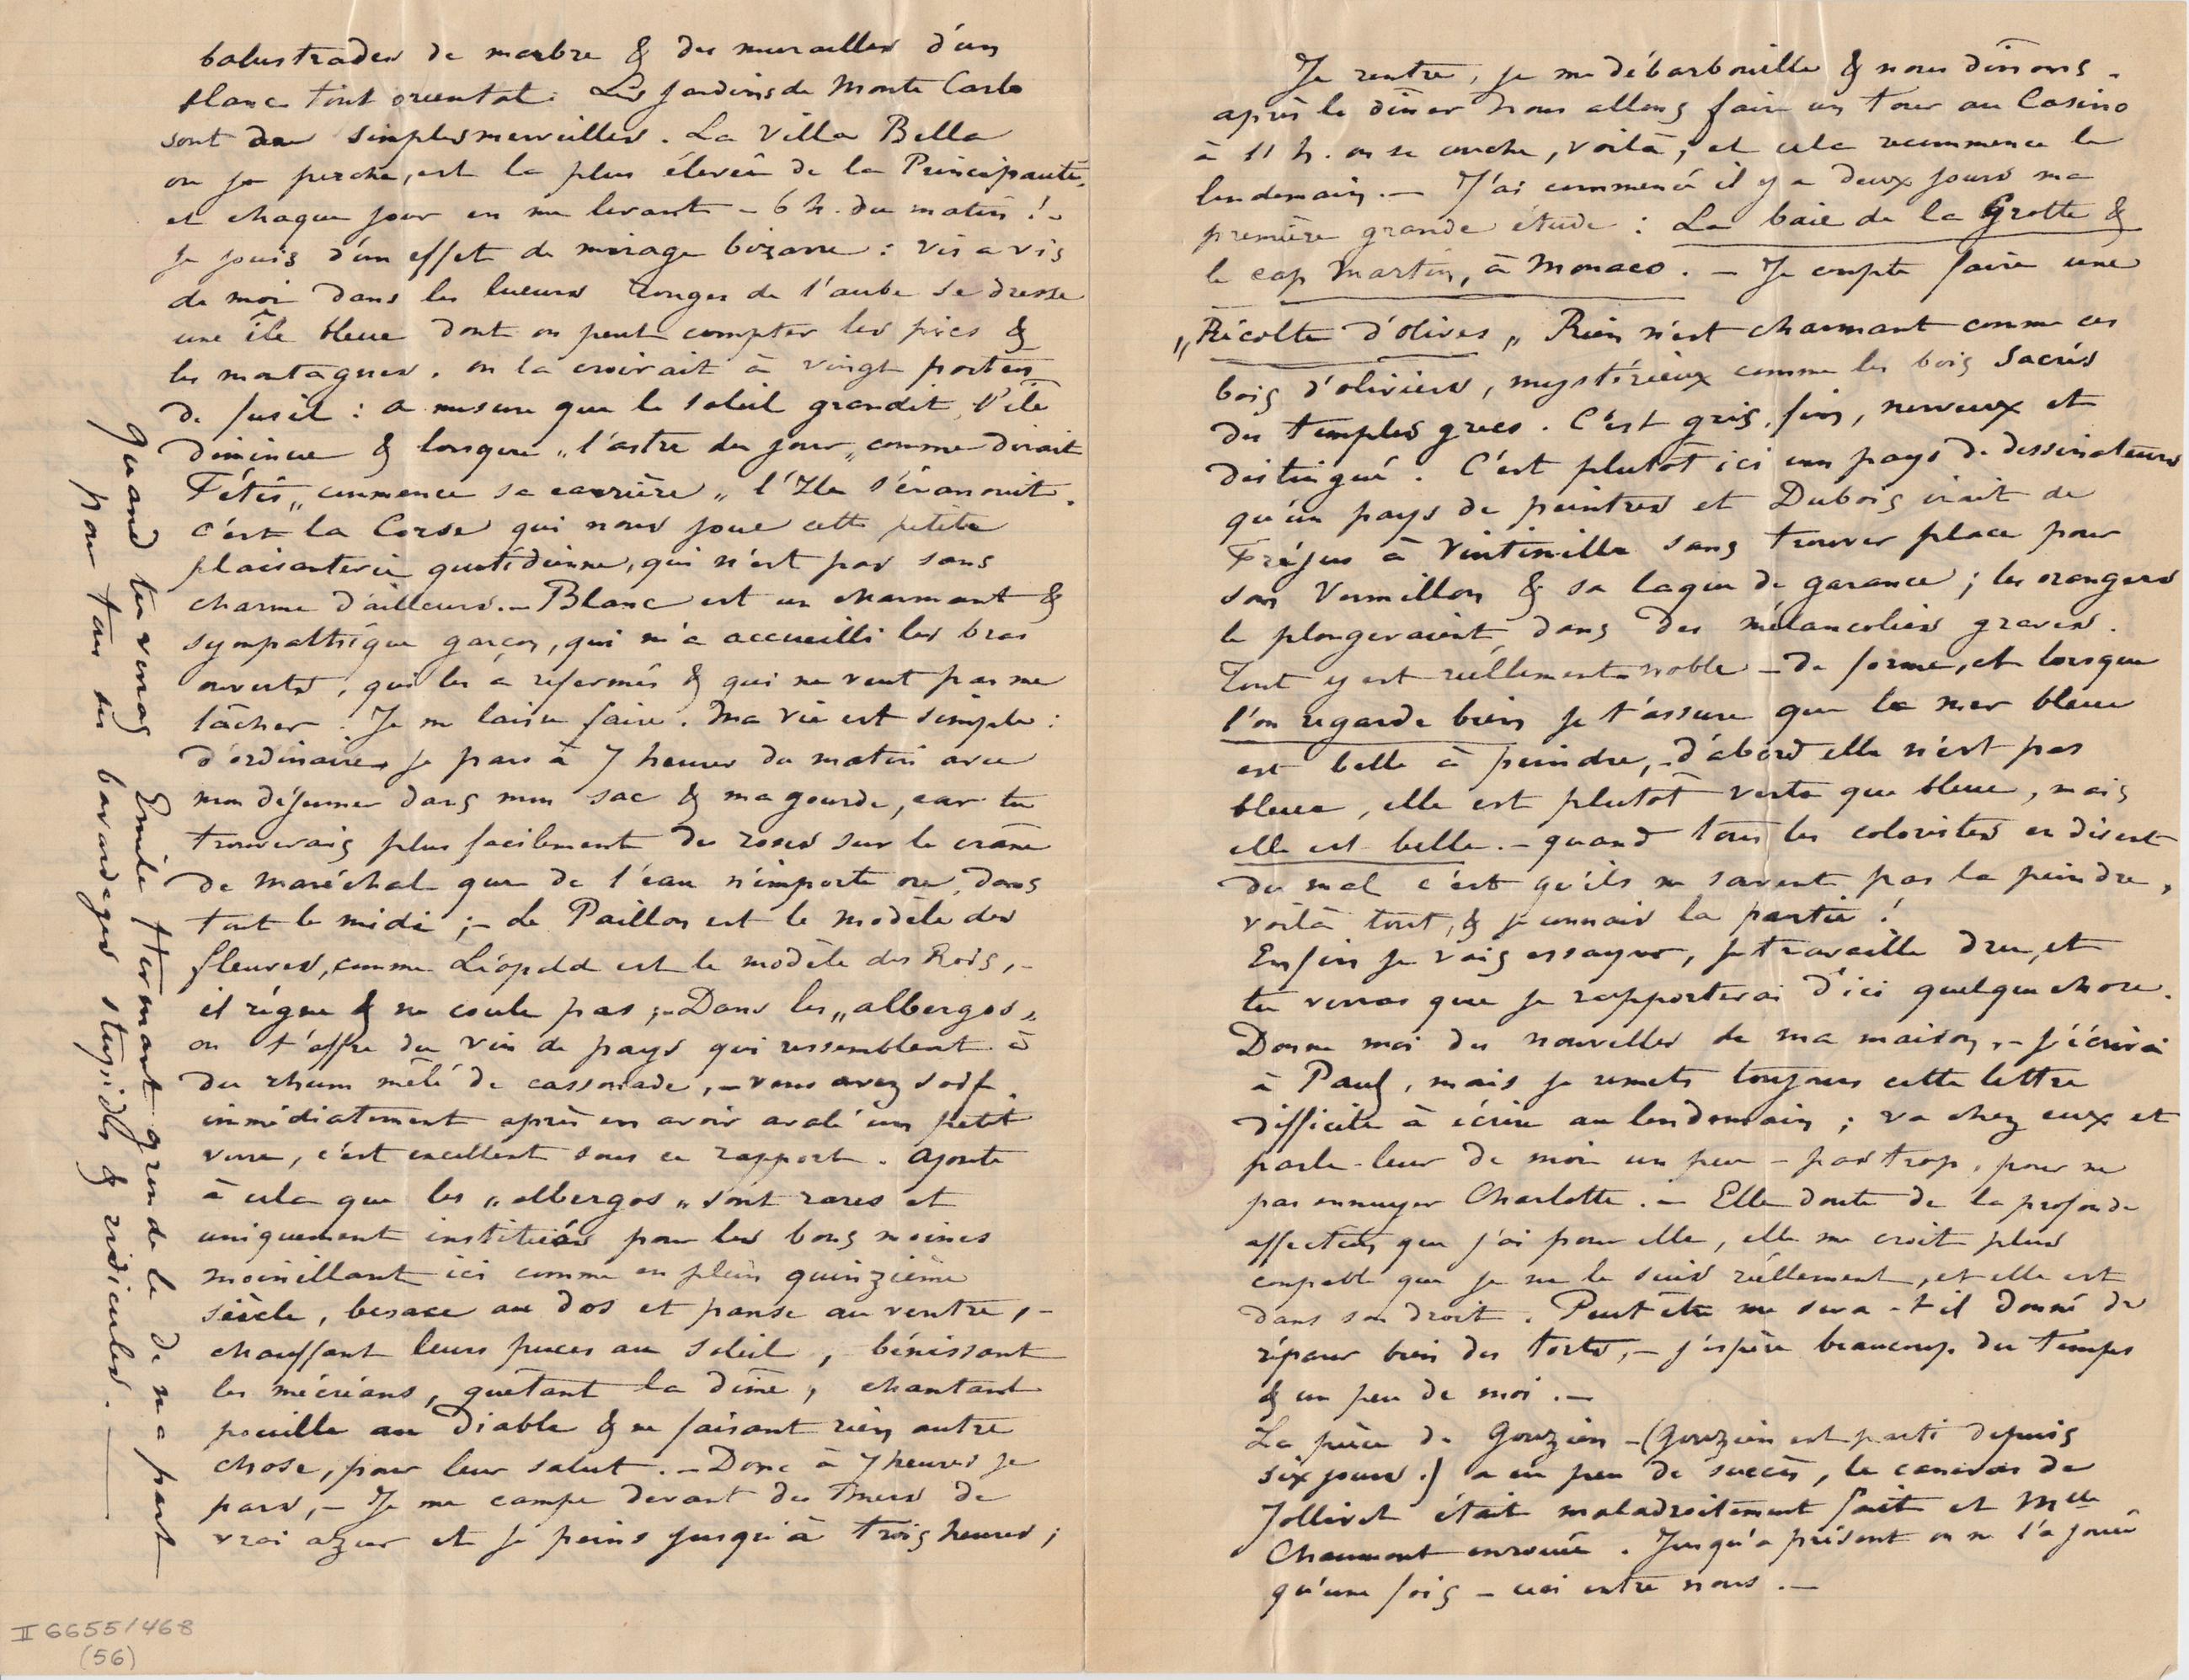 balustrades de marbre & des murailles d'un
blanc tout oriental. Les jardins de Monte Carlo
sont de simples merveilles. La Villa Bella
ou je perche, est la plus élevée de la Principauté,
et chaque jour en me levant – 6 h. du matin ! –
je jouis d'un effet de mirage bizarre : vis a vis
de moi dans les lueurs rouges de l'aube se dresse
une île bleue dont on peut compter les pics &
les montagnes. on la croirait à vingt portées
de fusil : a mesure que le soleil grandit l'île
diminue & lorsque „l'astre du jour„ comme dirait
Fétis „commence sa carrière„ l'Ile s'évanouit.
C'est la Corse qui nous joue cette petite
plaisanterie quotidienne, qui n'est pas sans
charme d'ailleurs. – Blanc est un charmant &
sympathique garçon, qui m'a accueilli les bras
ouverts, qui les a refermés & qui ne veut pas me
lâcher. Je me laisse faire. Ma vie est simple :
d'ordinaire je pars à 7 heures du matin avec
mon déjeuner dans mon sac & ma gourde, car tu
trouverais plus facilement des roses sur le crâne
de Maréchal que de l'eau n'importe ou, dans
tout le midi ; – Le Paillon est le modèle des
fleuves, comme Léopold est le modèle des Rois, –
il règne & ne coule pas ; – Dans les „albergos„
on t'offre du vin de pays qui ressemblent à
du rhum mêlé de cassonade, – vous avez soif
immédiatement après en avoir avalé un petit
verre, c'est excellent sous ce rapport. Ajoute
à cela que les „albergos„ sont rares et
uniquement institués pour les bons moines
moinillant ici comme en plein quinzième
siècle, besace au dos et panse au ventre, –
chauffant leurs puces au soleil, bénissant
les mécréans, quêtant la dîme, chantant
pouille au Diable & ne faisant rien autre
chose, pour leur salut. – Donc à 7 heures je
pars, – Je me campe devant des mers de
vrai azur et je peins jusqu'à trois heures ;
Quand tu verras Emile Hermant gronde le de ma part
pour tous ses bavardages stupides & ridicules. —
Je rentre, je me débarbouille & nous dînons.
après le dîner nous allons faire un tour au Casino
à 11 h. on se couche, voilà, et cela recommence le
lendemain. – J'ai commencé il y a deux jours ma
première grande étude : La baie de la Grotte &
le cap Martin, à Monaco. – Je compte faire une
„Récolte d'olives„ Rien n'est charmant comme ces
bois d'oliviers, mystérieux comme les bois sacrés
des temples grecs. C'est gris, fin, nerveux et
distingué. C'est plutôt ici un pays de dessinateurs
qu'un pays de peintres et Dubois irait de
Fréjus à Vintimille sans trouver place pour
son Vermillon & sa laque de garance ; les orangers
le plongeraient dans des mélancolies graves.
Tout y est réellement noble – de forme, et lorsque
l'on regarde bien je t'assure que la mer bleue
est belle à peindre, – d'abord elle n'est pas
bleue, elle est plutôt verte que bleue, mais
elle est belle. – quand tous les coloristes en disent
du mal c'est qu'ils ne savent pas la peindre,
voilà tout, & je connais la partie !
Enfin je vais essayer, je travaille dru, et
tu verras que je rapporterai d'ici quelque chose.
Donne moi des nouvelles de ma maison, – j'écrirai
à Paul, mais je remets toujours cette lettre
difficile à écrire au lendemain ; va chez eux et
parle-leur de moi un peu – pas trop, pour ne
pas ennuyer Charlotte. – Elle doute de la profonde
affection que j'ai pour elle, elle me croit plus
coupable que je ne le suis réellement, et elle est
dans son droit. Peut être me sera-t-il donné de
réparer bien des torts, – j'espère beaucoup du temps
& un peu de moi. –
La pièce de Gouzien – (Gouzien est parti depuis
six jours.) a eu peu de succès, le canevas de
Jollivet était maladroitement fait et Mlle
Chaumont enrouée. Jusqu'à présent on ne l'a joué
qu'une fois – ceci entre nous. –
II 6655/468
(56)